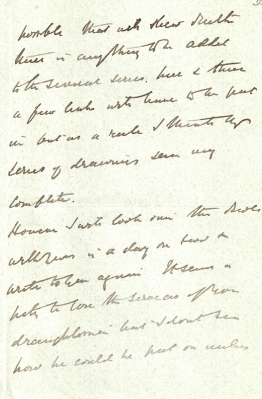 possible that
there is anything to be added
to the several series, here & there
a few have to be put
in but as a rule I think the
series of drawings seem very
complete.
However I will look over the
with you in a day or two &
write to you again. It seems a
pity to lose the services of your
draughtsman but I don't see
how he could be put on unless